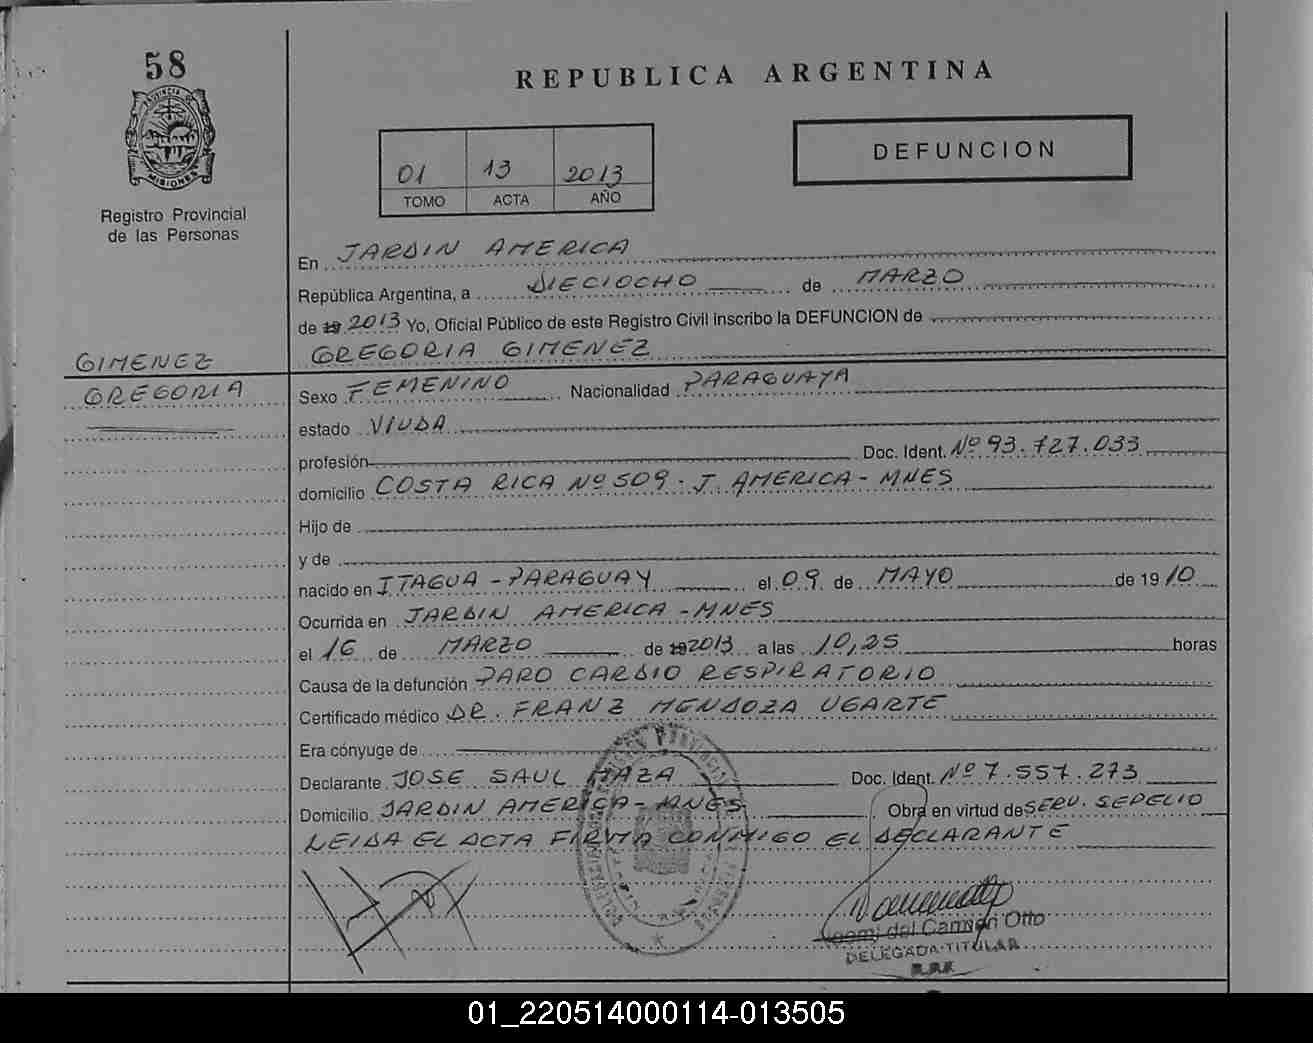 58
PROVINCIA DE
MISIONES
Registro Provincial
de las Personas
REPUBLICA ARGENTINA
01 13 2013
TOMO ACTA AÑO
DEFUNCION
En JARDIN AMERICA
República Argentina, a DIECIOCHO de MARZO
de 19 2013 Yo, Oficial Público de este Registro Civil inscribo la DEFUNCION de
GREGORIA GIMENEZ
GIMENEZ
GREGORIA
Sexo FEMENINO Nacionalidad PARAGUAYA
estado VIUDA
profesión Doc. Ident. Nº 93.727.033
domicilio COSTA RICA Nº 509. J. AMERICA - MNES
Hijo de
y de
nacido en ITAGUA - PARAGUAY el 09 de MAYO de 19 10
Ocurrida en JARDIN AMERICA - MNES
el 16 de MARZO de 19 2013 a las 10,25 horas
Causa de la defunción PARO CARDIO RESPIRATORIO
Certificado médico DR. FRANZ MENDOZA UGARTE
Era cónyuge de
Declarante JOSE SAUL MAZA Doc. Ident. Nº 7.557.273
Domicilio JARDIN AMERICA - MNES Obra en virtud de SERV. SEPELIO
LEIDA EL ACTA FIRMA CONMIGO EL DECLARANTE
del Carmen Otto
DELEGADA TITULAR
01_220514000114-013505